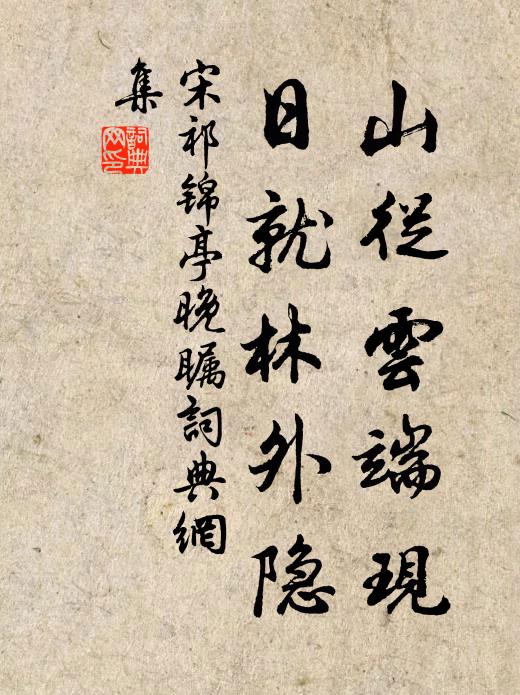 山從雲端現
日就林外隐
宋祁錦亭晚瞩詞典網
集
詞典網印